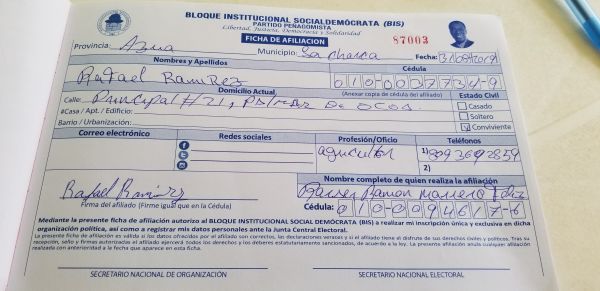 BLOQUE INSTITUCIONAL SOCIALDEMÓCRATA (BIS)
PARTIDO PEÑAGOMISTA
Libertad, Justicia, Democracia y Solidaridad
FICHA DE AFILIACION
87003
Provincia: Azua Municipio: Fecha:
Nombres y Apellidos Cédula
Rafael Ramirez
Domicilio Actual (Anexar copia de cédula del afiliado) Estado Civil
Calle: Principal #21, de Ocoa Casado
#Casa / Apto. / Edificio: Soltero
Barrio / Urbanización: Conviviente
Correo electrónico Redes sociales Profesión/Oficio Teléfonos
agricultor 1) 809 369 2859
2)
Nombre completo de quien realiza la afiliación
Rafael Ramirez Ramon
Firma del afiliado (Firme igual que en la Cédula) Cédula: 010-0094617-6
Mediante la presente ficha de afiliación autorizo al BLOQUE INSTITUCIONAL SOCIAL DEMÓCRATA (BIS) a realizar mi inscripción única y exclusiva en dicha
organización política, así como a registrar mis datos personales ante la Junta Central Electoral.
La presente ficha de afiliación es válida si los datos ofrecidos por el afiliado son correctos, las declaraciones veraces y si el afiliado tiene el disfrute de sus derechos civiles y políticos. Tras su
recepción, seño y firmas autorizadas el afiliado ejercerá todos los derechos y los deberes estatutariamente sancionados, de acuerdo a la ley. La presente afiliación anula cualquier afiliación
realizada con anterioridad a la fecha que aparece en esta ficha.
SECRETARIO NACIONAL DE ORGANIZACIÓN SECRETARIO NACIONAL ELECTORAL